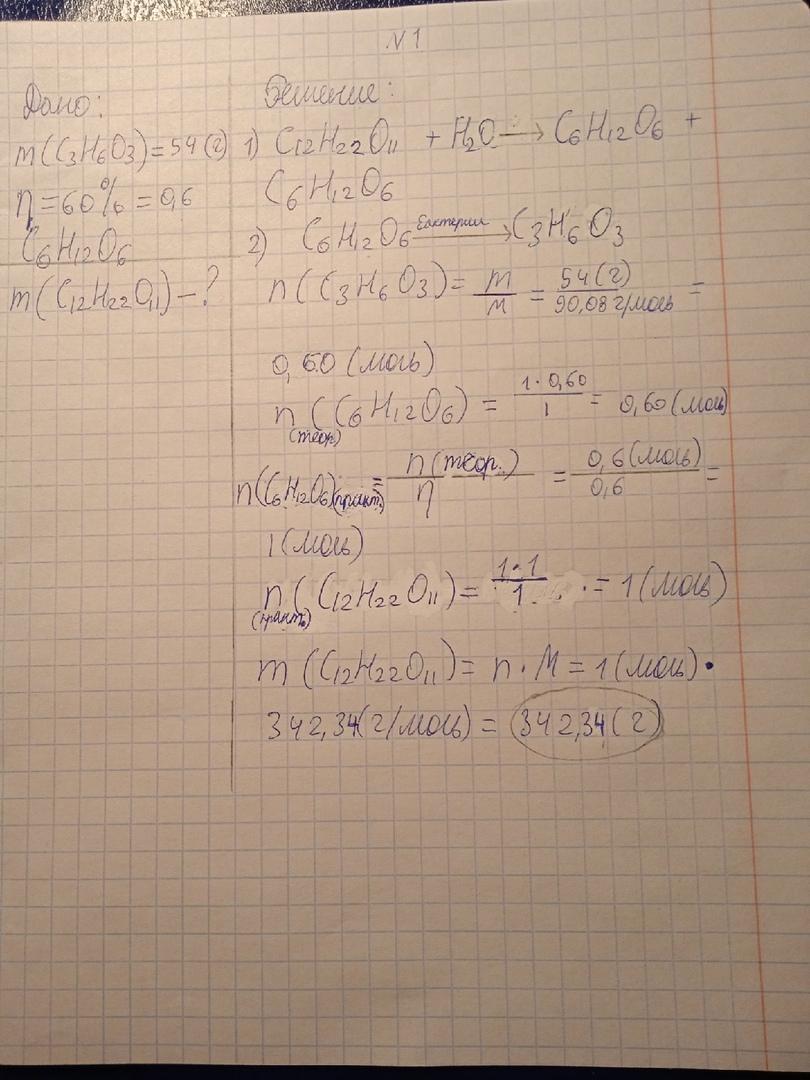 N1
Дано:
m(C3H6O3)=54(г)
η=60%=0,6
C6H12O6
m(C12H22O11)-?
Решение:
1) C12H22O11 + H2O → C6H12O6 +
C6H12O6
2) C6H12O6 бактерии → C3H6O3
n(C3H6O3)= m/M = 54(г)/90,08 г/моль =
0,60(моль)
n(теор.)(C6H12O6) = 1·0,60/1 = 0,60(моль)
n(C6H12O6)(практ.) = n(теор.)/η = 0,6(моль)/0,6 =
1(моль)
n(практ.)(C12H22O11)= 1·1/1 = 1(моль)
m(C12H22O11)= n·M = 1(моль)·
342,34(г/моль) = 342,34(г)